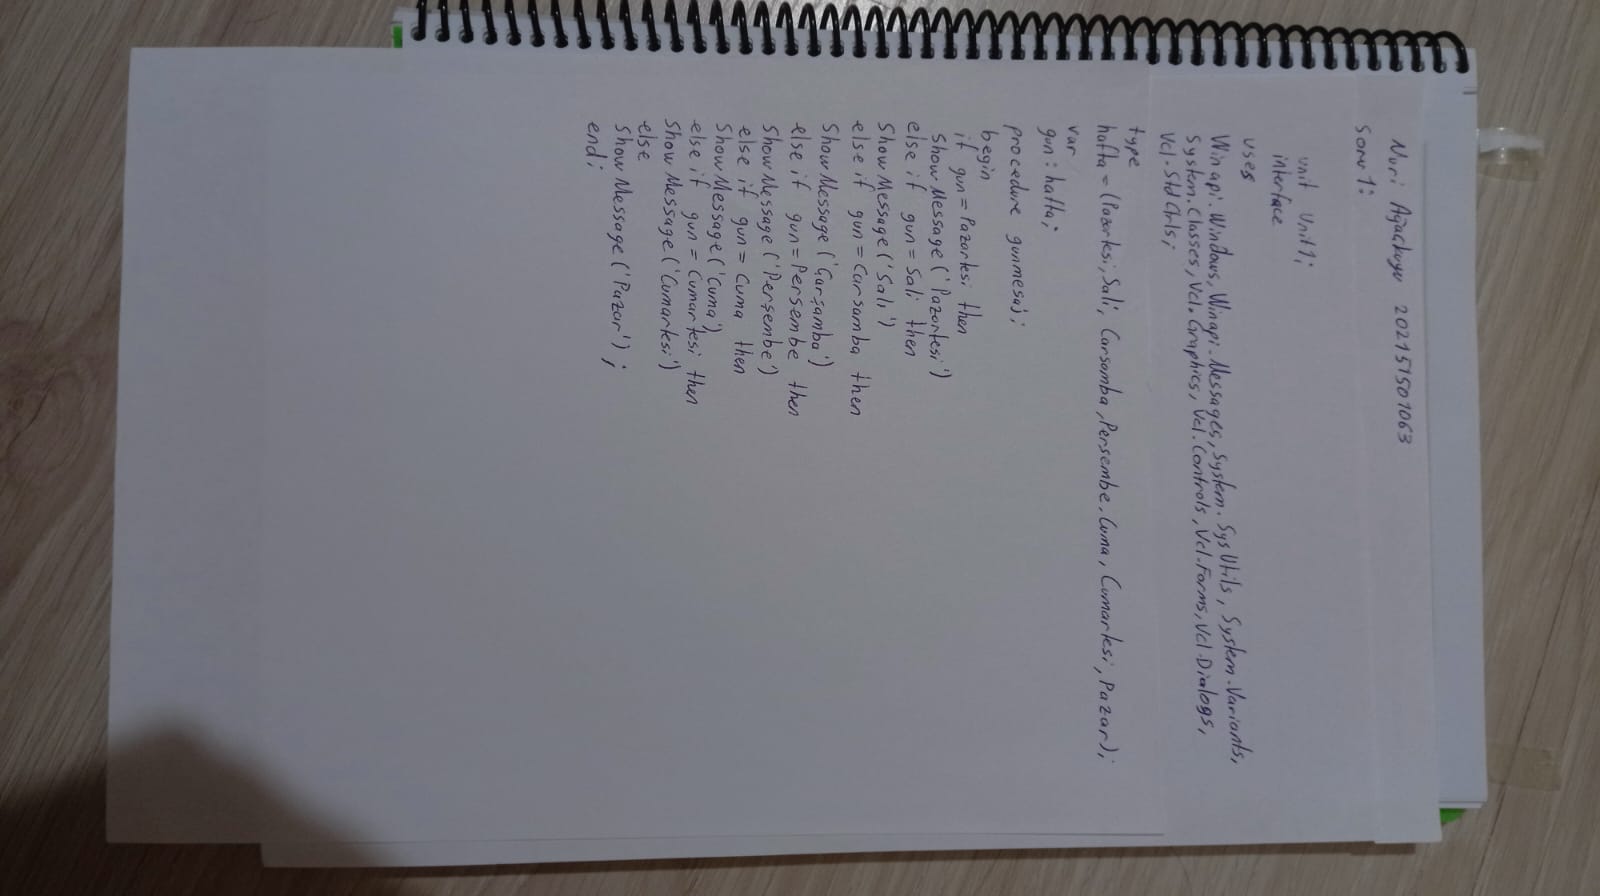 Nuri Ağackoyu 202151501063
Soru 1:
unit Unit1;
interface
uses
Winapi.Windows, Winapi.Messages, System.SysUtils, System.Variants,
System.Classes, Vcl.Graphics, Vcl.Controls, Vcl.Forms, Vcl.Dialogs,
Vcl.StdCtrls;
type
hafta = (Pazartesi, Sali, Carsamba, Persembe, Cuma, Cumartesi, Pazar);
var
gun: hafta;
procedure gunmesaj;
begin
if gun = Pazartesi then
ShowMessage('Pazartesi')
else if gun = Sali then
ShowMessage('Salı')
else if gun = Carsamba then
ShowMessage('Çarşamba')
else if gun = Persembe then
ShowMessage('Perşembe')
else if gun = Cuma then
ShowMessage('Cuma')
else if gun = Cumartesi then
ShowMessage('Cumartesi')
else
ShowMessage('Pazar');
end;